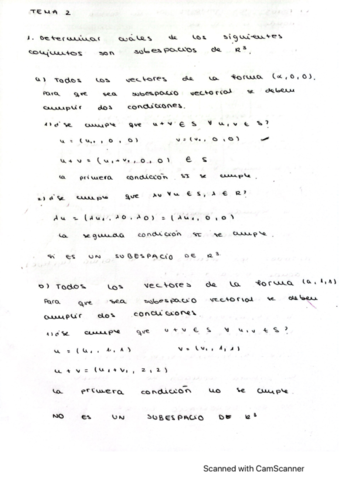 TEMA 2
1. Determinar cuáles de los siguientes
conjuntos son subespacios de R³.
a) Todos los vectores de la forma (x,0,0).
Para que sea subespacio vectorial se deben
cumplir dos condiciones.
1) ¿se cumple que u+v ∈ S ∀ u,v ∈ S?
u = (u₁, 0, 0) v = (v₁, 0, 0)
u+v = (u₁+v₁, 0, 0) ∈ S
la primera condición SI se cumple.
2) ¿se cumple que λu ∀u ∈ S, λ ∈ R?
λu = (λu₁, λ0, λ0) = (λu₁, 0, 0)
la segunda condición SI se cumple.
SI ES UN SUBESPACIO DE R³
b) Todos los vectores de la forma (a,1,1)
Para que sea subespacio vectorial se deben
cumplir dos condiciones.
1) ¿se cumple que u+v ∈ S ∀ u,v ∈ S?
u = (u₁, 1, 1) v = (v₁, 1, 1)
u+v = (u₁+v₁, 2, 2)
la primera condición no se cumple.
NO ES UN SUBESPACIO DE R³
Scanned with CamScanner